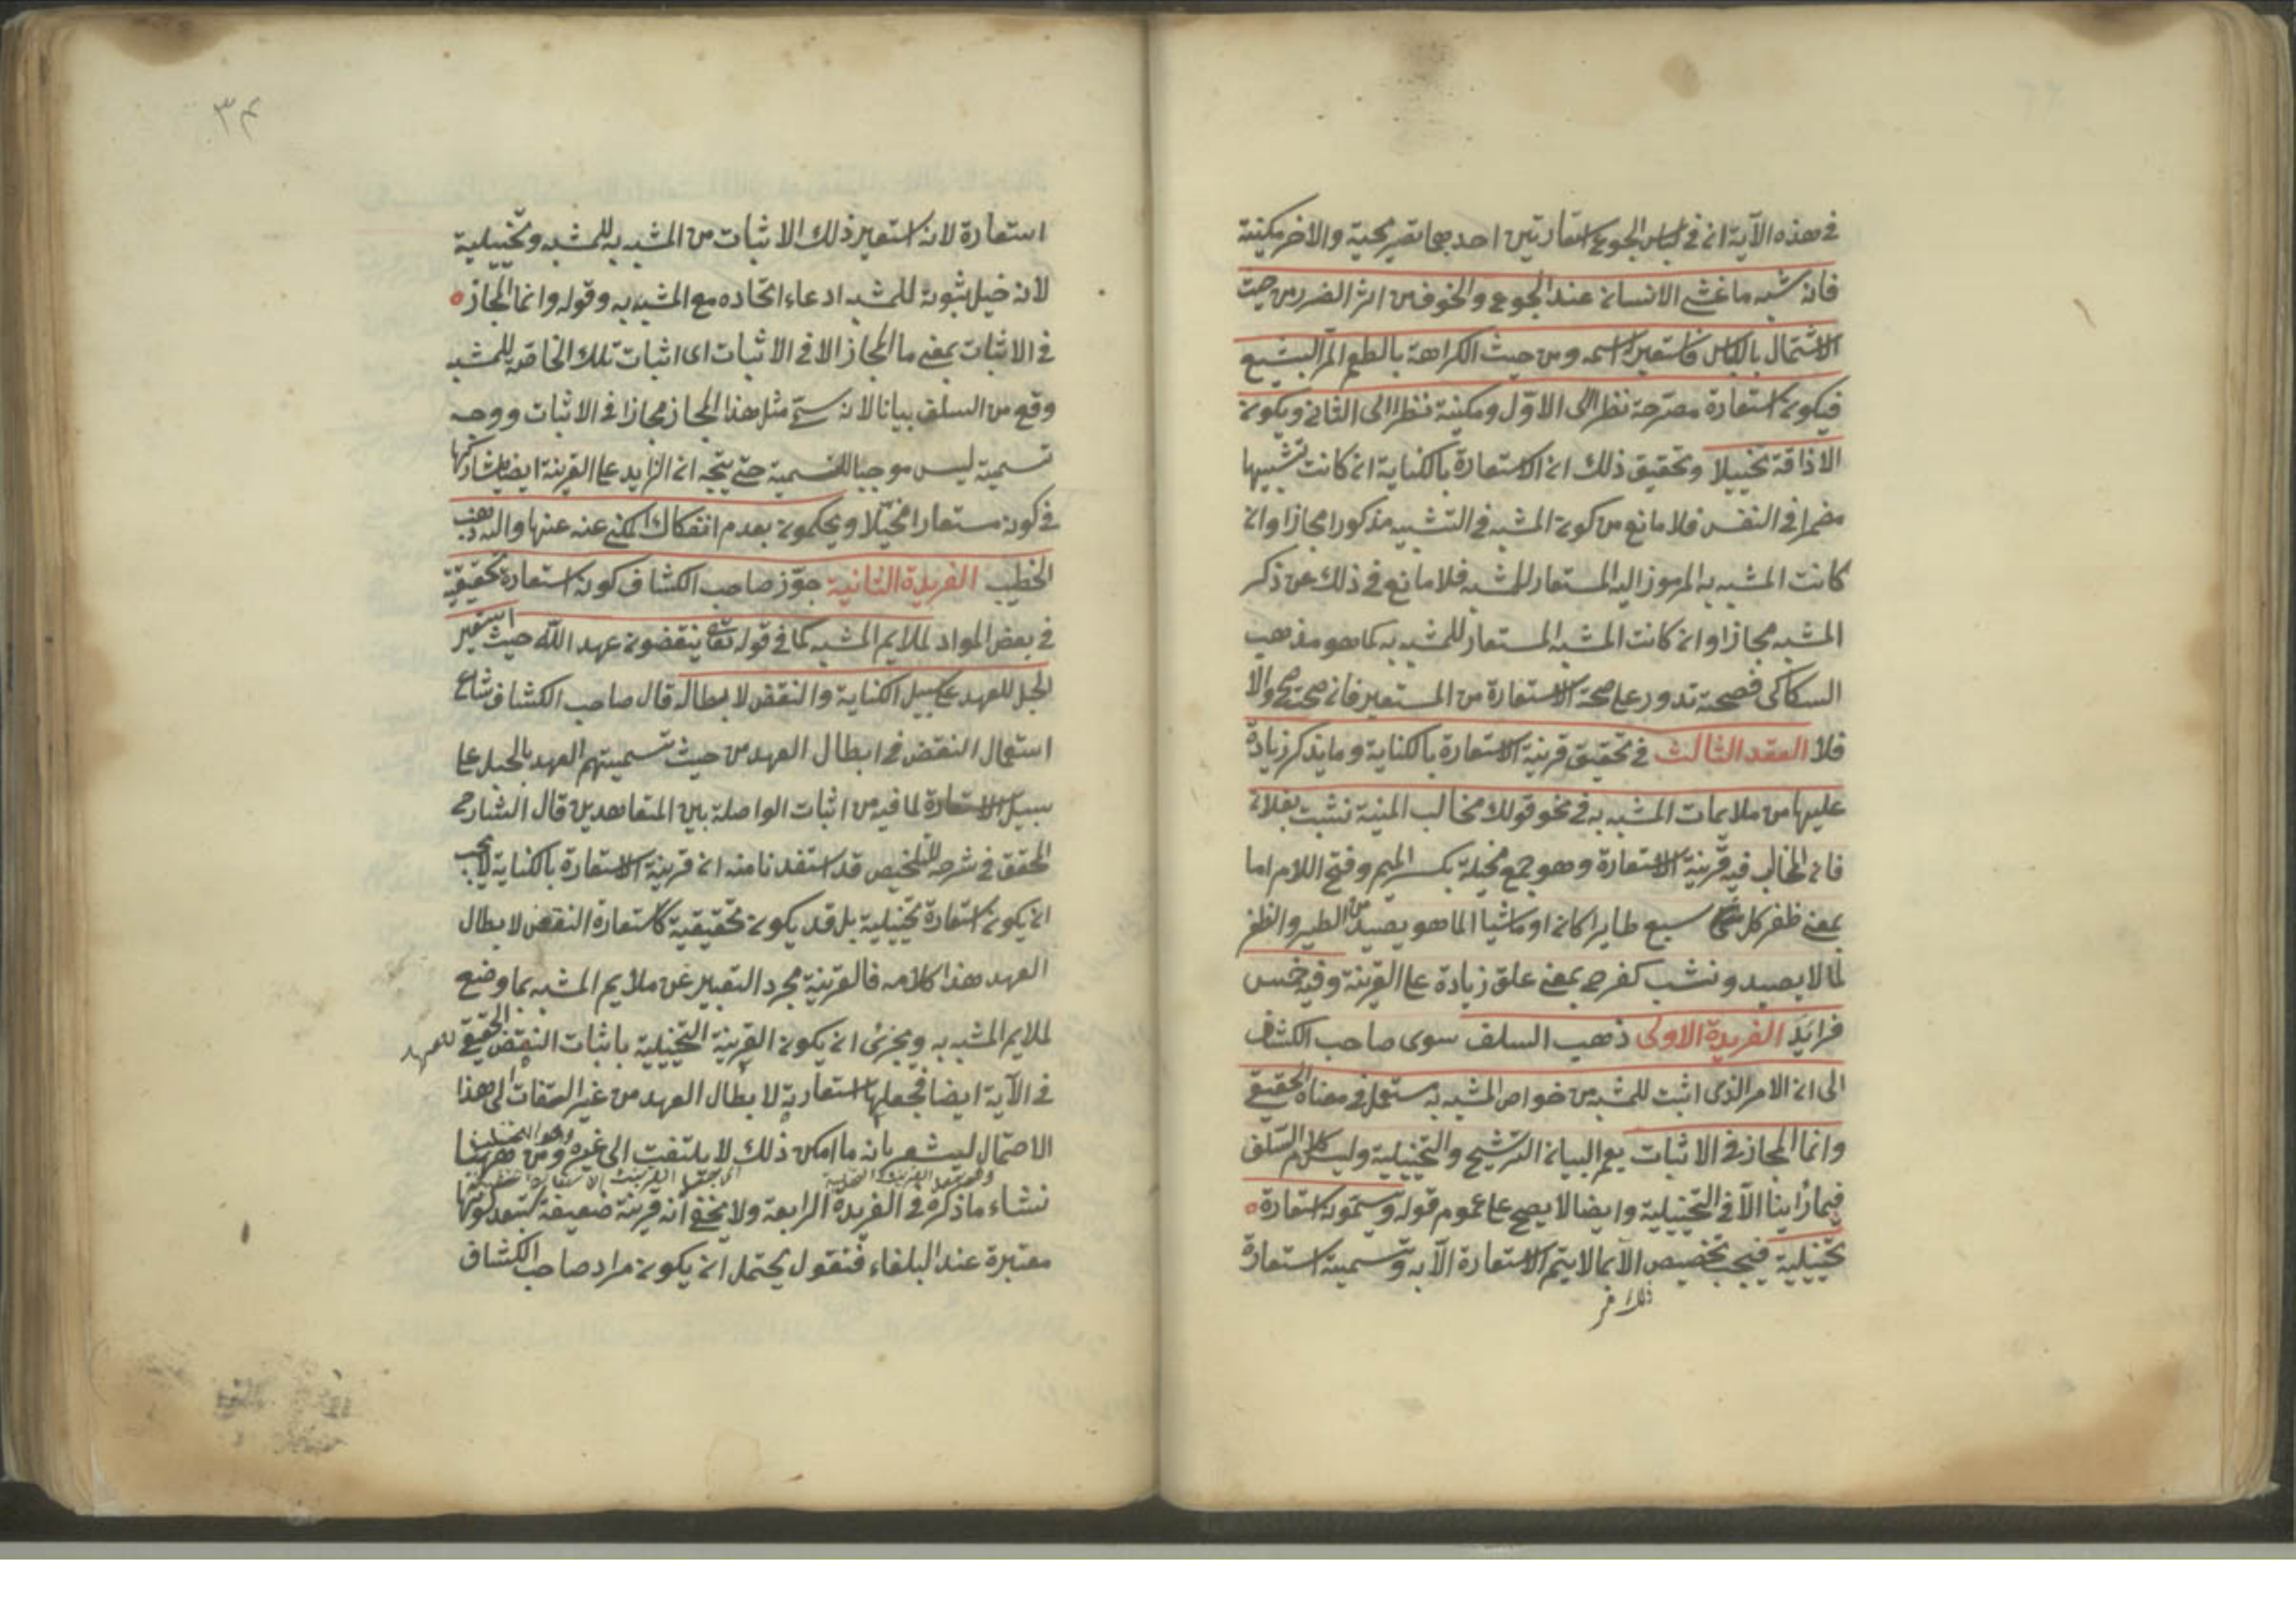 في هذه الآية ان في لباس الجوع استعارتين احديهما تصريحية والاخر مكنية
فانه شبه ما غشي الانسان عند الجوع والخوف من اثر الضرر من حيث
الاشتمال باللباس فاستعير اسمه ومن حيث الكراهة بالطعم المر البشيع
فيكون استعارة مصرحة نظرا الى الاول ومكنية نظرا الى الثاني ويكون
الاذاقة تخييلا وتحقيق ذلك ان الاستعارة بالكناية ان كانت تشبيها
مضمرا في النفس فلا مانع من كون المشبه في التشبيه مذكورا مجازا وان
كانت المشبه به المرموز اليه المستعار للمشبه فلا مانع في ذلك عن ذكر
المشبه مجازا وان كانت المشبه المستعار للمشبه به كما هو مذهب
السكاكي فصحته تدور على صحة الاستعارة من المستعير فان صحت صح والا
فلا العقد الثالث في تحقيق قرينة الاستعارة بالكناية وما يذكر زيادة
عليها من ملايمات المشبه به في نحو قولك مخالب المنية نشبت بفلان
فان المخالب فيه قرينة الاستعارة وهو جمع مخلبة بكسر الميم وفتح اللام اما
بمعنى ظفر كل سبع طايرا كان او ماشيا اما هو يصيد من الطير والظفر
لما لا يصيد ونشب كفرح بمعنى علق زيادة على القرينة وفيه خمس
فرايد الفريدة الاولى ذهب السلف سوى صاحب الكشاف
الى ان الامر الذي اثبت للمشبه من خواص المشبه به مستعمل في معناه الحقيقي
وانما المجاز في الاثبات يعم البيان الترشيح والتخييلية وليس كلام السلف
فيما راينا الا في التخييلية وايضا لا يصح على عموم قوله وسموه استعارة
تخييلية فيجب تخصيص الامر بما لا يتم الاستعارة الا به وتسمية استعارة
استعارة لانه استعير ذلك الاثبات من المشبه به للمشبه وتخييلية
لانه خيل ثبوته للمشبه ادعاء اتحاده مع المشبه به وقوله وانما المجاز
في الاثبات بمعنى ما المجاز الا في الاثبات اى اثبات تلك الخاصة للمشبه
وقع من السلف بيانا لانه سمي مثل هذا المجاز مجازا في الاثبات ووجه
تسمية ليس موجبا للتسمية حتى يتجه ان الزايد على القرينة ايضا يشاركها
في كونه مستعارا مخيلا ويحكمون بعدم انفكاك المكني عنه عنها واليه ذهب
الخطيب الفريدة الثانية جوز صاحب الكشاف كونه استعارة تحقيقية
في بعض المواد لملايم المشبه كما في قوله تعالى ينقضون عهد الله حيث استعير
الحبل للعهد على سبيل الكناية والنقض لابطاله قال صاحب الكشاف شاع
استعمال النقض في ابطال العهد من حيث تسميتهم العهد بالحبل على
سبيل الاستعارة لما فيه من اثبات الواصلة بين المتعاهدين قال الشارح
المحقق في شرحه للتلخيص قد استفدنا منه ان قرينة الاستعارة بالكناية لا يجب
ان يكون استعارة تخييلية بل قد يكون تحقيقية كاستعارة النقض لابطال
العهد هذا كلامه فالقرينة مجرد التعبير عن ملايم المشبه بما وضع
لملايم المشبه به ويجزئ ان يكون القرينة التخييلية باثبات النقض الحقيقي للعهد
في الآية ايضا فجعلها استعارية لابطال العهد من غير التفات الى هذا
الاحتمال ليشعر بانه ما امكن ذلك لا يلتفت الى غيره ومن ههنا
نشاء ما ذكره في الفريدة الرابعة ولا يخفى انه قرينة ضعيفة كونها
معتبرة عند البلغاء فنقول يحتمل ان يكون مراد صاحب الكشاف
٣٤